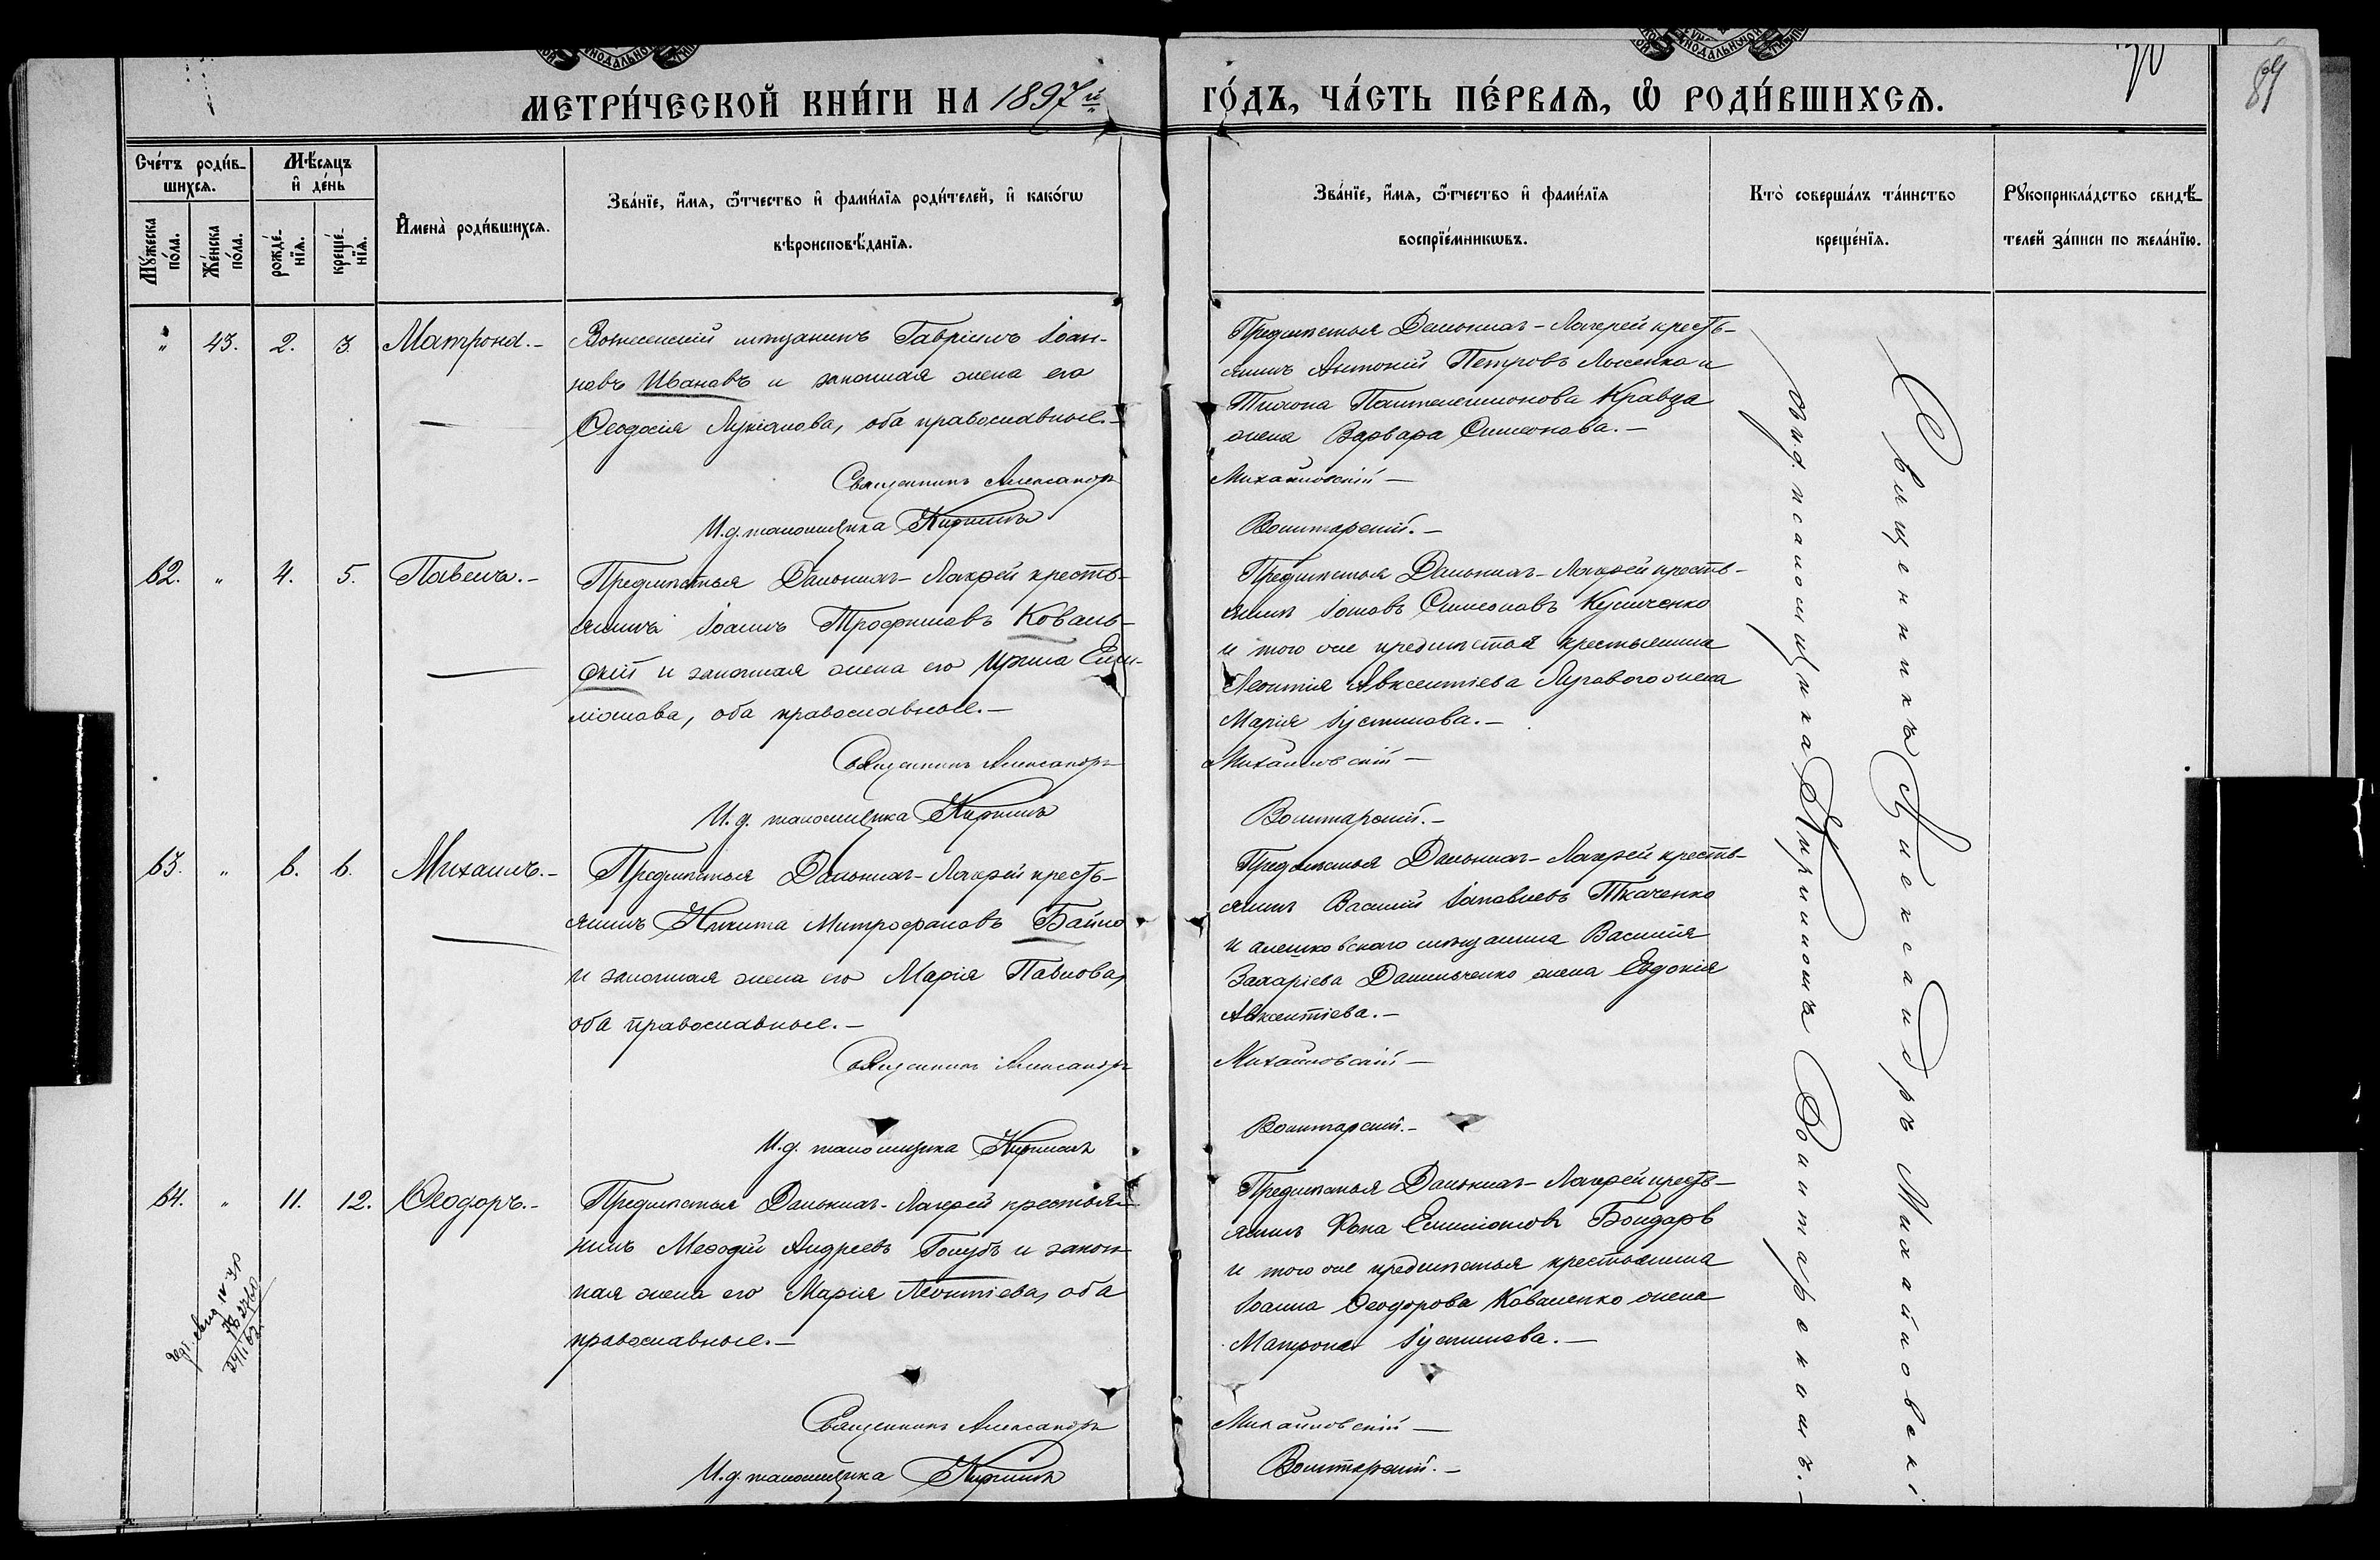 МЕТРИ́ЧЕСКОЙ КНИ́ГИ НА 1897й
ГО́ДЪ, ЧА́СТЬ ПЕ́РВАѦ, Ѡ҆ РОДИ́ВШИХСѦ.
89
Сче́тъ роди́в-
шихсѧ.
Мѣ́сѧцъ
и҆ де́нь
Мꙋ́жеска
по́ла.
Же́нска
по́ла.
рожде́-
нїѧ.
креще́-
нїѧ.
И҆мена̀ роди́вшихсѧ.
Зва́нїе, и҆́мѧ, ѻ҆́тчество и҆ фами́лїѧ роди́телей, и҆ како́гѡ
вѣроисповѣ́данїѧ.
Зва́нїе, и҆́мѧ, ѻ҆́тчество и҆ фами́лїѧ
воспрїе́мникѡвъ.
Кто̀ соверша́лъ та́инство
креще́нїѧ.
Рꙋкоприкла́дство свидѣ́-
телей за́писи по жела́нїю.
" 43. 2. 3. Матрона.-
Вознесенскій мѣщанинъ Гавріилъ Іоан-
новъ Ивановъ и законная жена его
Ѳеодосія Лукіанова, оба православные.-
Священникъ Александръ
И.д. псаломщика Кириллъ
Предмѣстья Дальнихъ-Лагерей кресть-
янинъ Антоній Петровъ Лысенко и
Тихона Пантелеимонова Кравца
жена Варвара Симеонова.-
Михайловскій-
Воинтарскій.-
62. " 4. 5. Павелъ.-
Предмѣстья Дальнихъ-Лагерей кресть-
янинъ Іоаннъ Трофимовъ Коваль-
скій и законная жена его Ирина Еми-
ліанова, оба православные.-
Священникъ Александръ
И.д. псаломщика Кириллъ
Предмѣстья Дальнихъ-Лагерей кресть-
янинъ Іовъ Симеоновъ
и того же предмѣстья крестьянина
Леонтія Авксентіева жена
Марія Іустинова.-
Михайловскій-
Воинтарскій.-
63. " 6. 6. Михаилъ.-
Предмѣстья Дальнихъ-Лагерей кресть-
янинъ Никита Митрофановъ Байло
и законная жена его Марія Павлова,
оба православные.-
Священникъ Александръ
И.д. псаломщика Кириллъ
Предмѣстья Дальнихъ-Лагерей кресть-
янинъ Василій Ткаченко
и алешковскаго мѣщанина Василія
Захаріева Данильченко жена Евдокія
Авксентіева.-
Михайловскій-
Воинтарскій.-
64. " 11. 12. Ѳеодоръ.-
Предмѣстья Дальнихъ-Лагерей крестья-
нинъ Меѳодій Андреевъ Голубъ и закон-
ная жена его Марія Леонтіева, оба
православные.-
Священникъ Александръ
И.д. псаломщика Кириллъ
Предмѣстья Дальнихъ-Лагерей кресть-
янинъ Ѳома Емиліановъ Бондарь
и того же предмѣстья крестьянина
Іоанна Ѳеодорова Коваленко жена
Матрона Іустинова.-
Михайловскій-
Воинтарскій.-
Священникъ Александръ Михайловскі
съ и.д. псаломщика Кирилломъ Воинтарскимъ.-